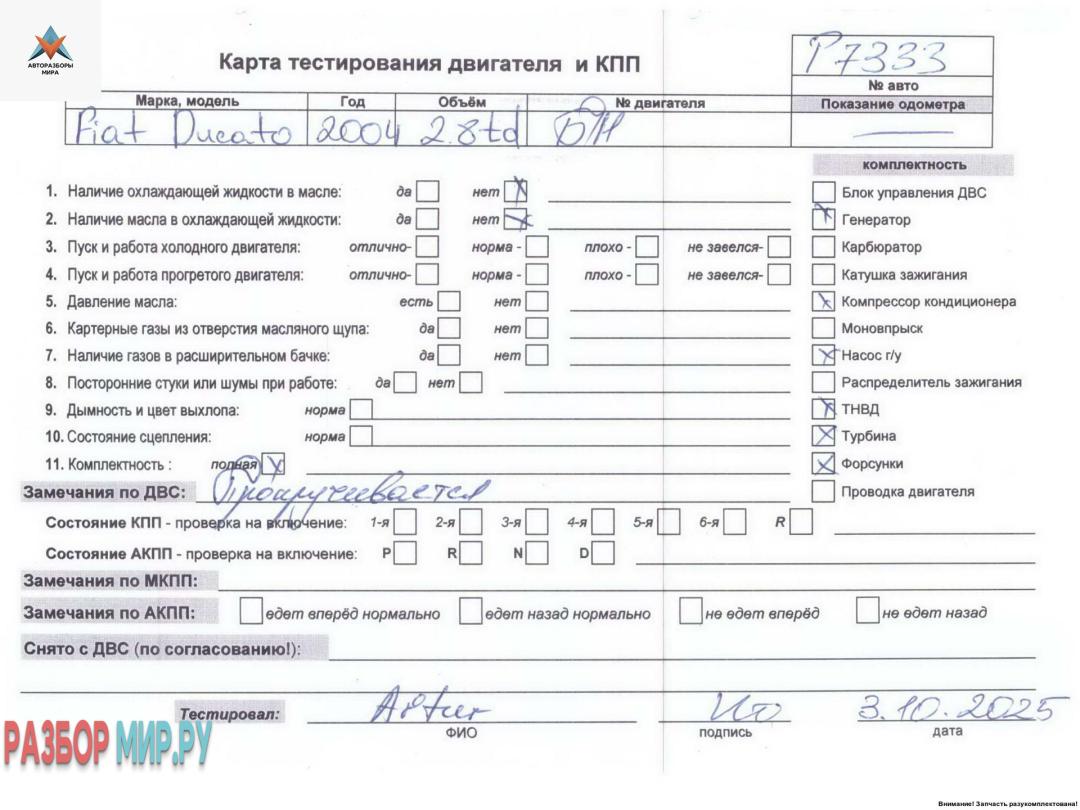 АВТОРАЗБОРЫ
МИРА
Карта тестирования двигателя и КПП
P7333
№ авто
Марка, модель Год Объём № двигателя Показание одометра
Fiat Ducato 2004 2.8td БН —
комплектность
1. Наличие охлаждающей жидкости в масле: да нет Блок управления ДВС
2. Наличие масла в охлаждающей жидкости: да нет Генератор
3. Пуск и работа холодного двигателя: отлично- норма - плохо - не завелся- Карбюратор
4. Пуск и работа прогретого двигателя: отлично- норма - плохо - не завелся- Катушка зажигания
5. Давление масла: есть нет Компрессор кондиционера
6. Картерные газы из отверстия масляного щупа: да нет Моновпрыск
7. Наличие газов в расширительном бачке: да нет Насос г/у
8. Посторонние стуки или шумы при работе: да нет Распределитель зажигания
9. Дымность и цвет выхлопа: норма ТНВД
10. Состояние сцепления: норма Турбина
11. Комплектность : полная Форсунки
Замечания по ДВС: Прокручивается Проводка двигателя
Состояние КПП - проверка на включение: 1-я 2-я 3-я 4-я 5-я 6-я R
Состояние АКПП - проверка на включение: P R N D
Замечания по МКПП:
Замечания по АКПП: едет вперёд нормально едет назад нормально не едет вперёд не едет назад
Снято с ДВС (по согласованию!):
Тестировал: Artur 3.10.2025
ФИО подпись дата
РАЗБОРМИР.РУ
Внимание! Запчасть разукомплектована!